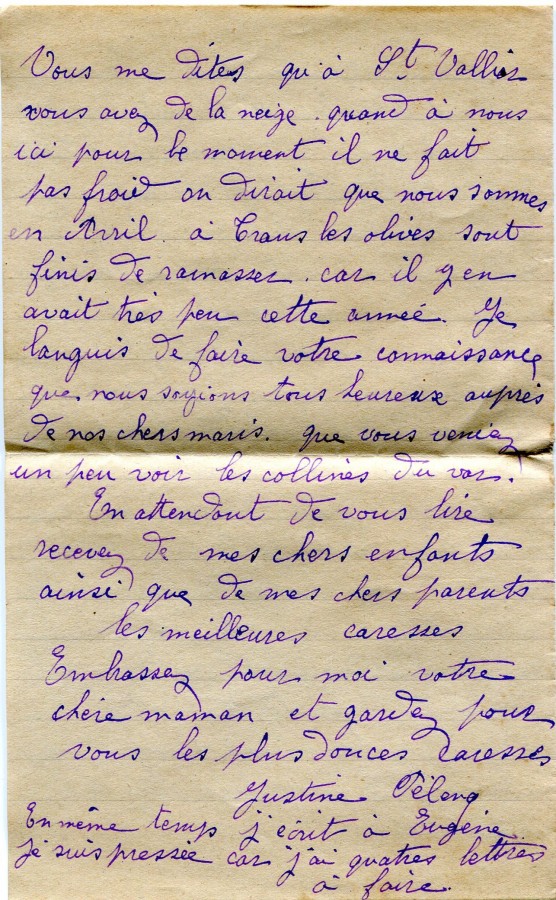 Vous me dites qu'à St Vallier
vous avez de la neige. quand à nous
ici pour le moment il ne fait
pas froid on dirait que nous sommes
en Avril. à Trans les olives sont
finis de ramasser. car il y en
avait très peu cette année. Je
languis de faire votre connaissance
que nous soyions tous heureux auprès
de nos chers maris. que vous veniez
un peu voir les collines du var.
En attendant de vous lire
recevez de mes chers enfants
ainsi que de mes chers parents
les meilleures caresses
Embrassez pour moi votre
chère maman et gardez pour
vous les plus douces caresses
Justine
En même temp j'écrit à Eugène
Je suis pressée car j'ai quatres lettres
à faire.